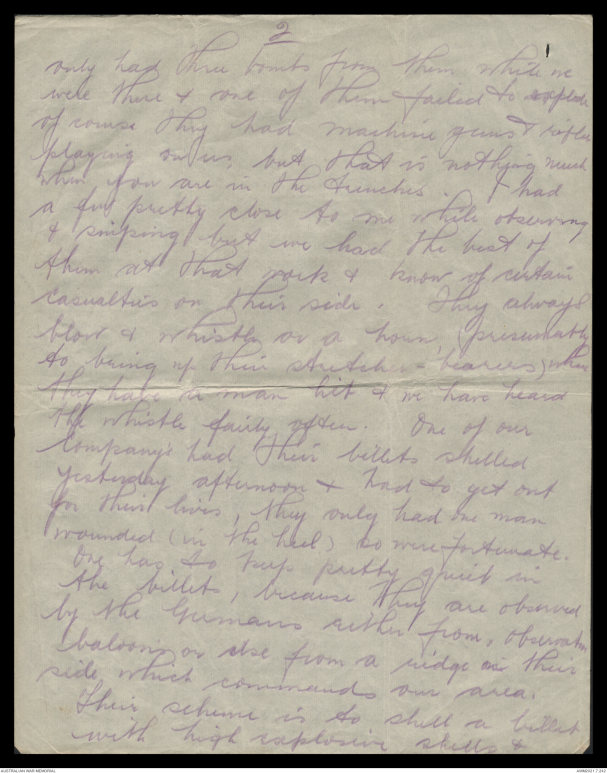 2
only had three bombs from them while we
were there & one of them failed to explode
of course they had machine guns & rifles
playing on us, but that is nothing much
when you are in the trenches. I had
a few pretty close to me while observing
& sniping but we had the best of
them at that work & know of certain
casualties on their side. They always
blow & whistle or a horn, (presumably
to bring up their stretcher-bearers) when
they have a man hit & we have heard
the whistle fairly often. One of our
Company's had their billets shelled
yesterday afternoon & had to get out
for their lives, they only had one man
wounded (in the heel) so were fortunate.
One has to keep pretty quiet in
the billets, because they are observed
by the Germans either from, observation
baloons or else from a ridge on their
side which commands our area.
Their scheme is to shell a billet
with high explosive shells &
AUSTRALIAN WAR MEMORIAL